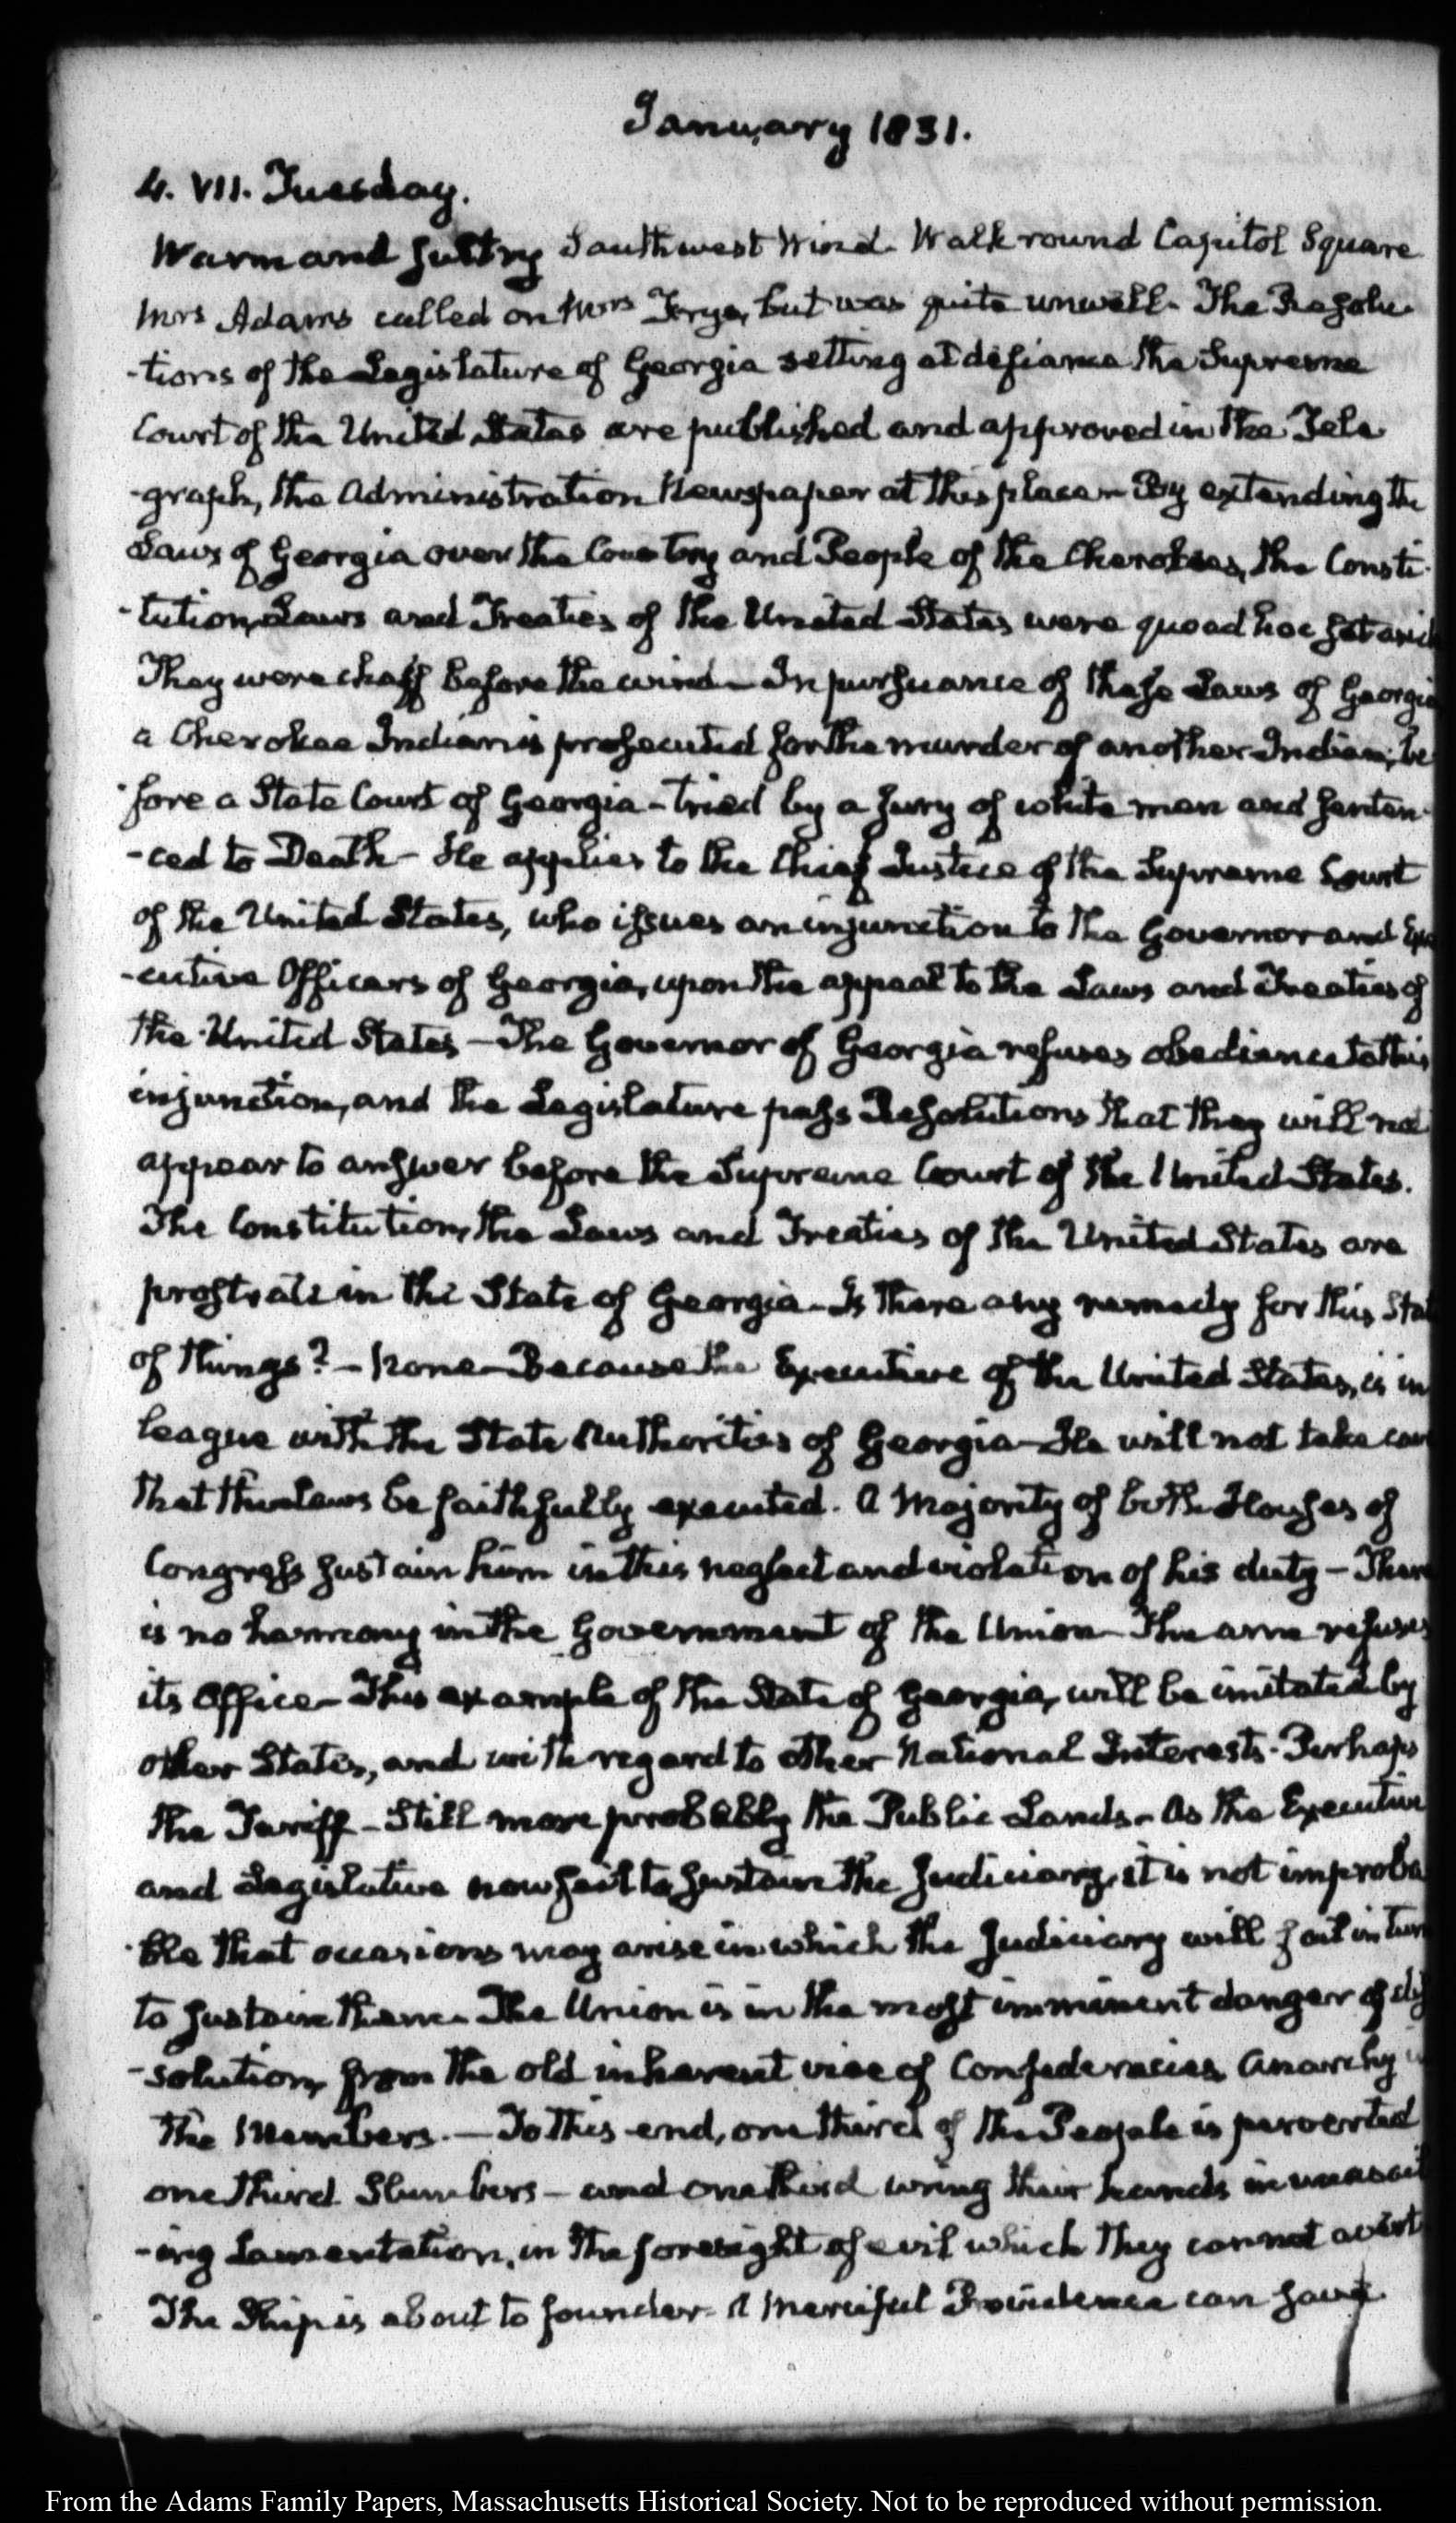 January 1831.
4. VII. Tuesday.
Warm and sultry Southwest Wind. Walk round Capitol Square
Mrs Adams called on Mrs but was quite unwell. The Resolu
-tions of the Legislature of Georgia setting at defiance the Supreme
Court of the United States are published and approved in the Tele
-graph, the Administration Newspaper at this place — By extending the
Laws of Georgia over the Country and People of the Cherokees, the Consti-
-tution, Laws and Treaties of the United States were quoad hoc set aside
They were chaff before the wind — In pursuance of these Laws of Georgia
a Cherokee Indian is prosecuted for the murder of another Indian, be
-fore a State Court of Georgia - tried by a Jury of white men and senten-
-ced to Death - He applies to the Chief Justice of the Supreme Court
of the United States, who issues an injunction to the Governor and Exe
-cutive Officers of Georgia, upon the appeal to the Laws and Treaties of
the United States — The Governor of Georgia refuses obedience to this
injunction, and the Legislature pass Resolutions that they will not
appear to answer before the Supreme Court of the United States.
The Constitution, the Laws and Treaties of the United States are
prostrate in the State of Georgia — Is there any remedy for this State
of things? — None — Because the Executive of the United States, is in
league with the State Authorities of Georgia — He will not take care
that the laws be faithfully executed. A Majority of both Houses of
Congress sustain him in this neglect and violation of his duty — There
is no harmony in the Government of the Union — The arm refuses
its Office — This example of the State of Georgia, will be imitated by
other States, and with regard to other National Interests - Perhaps
the Tariff - Still more probably the Public Lands - As the Executive
and Legislative now fail to sustain the Judiciary, it is not improba
-ble that occasions may arise in which the Judiciary will fail in turn
to sustain them. The Union is in the most imminent danger of dis
-solution, from the old inherent vice of Confederacies, Anarchy in
the Members. — To this end, one third of the People is perverted
one third Slumbers — and one third wring their hands in unavail
-ing Lamentation, in the foresight of evil which they cannot avert
The Ship is about to founder - A Merciful Providence can save
From the Adams Family Papers, Massachusetts Historical Society. Not to be reproduced without permission.